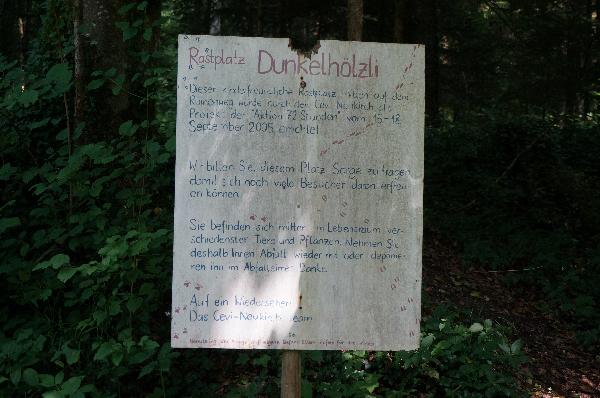 Rastplatz Dunkelhölzli
Dieser kinderfreundliche Rastplatz neben auf dem
wurde durch den Cevi Neukirch als
Projekt der "Aktion 72 Stunden" vom 15-18.
September 2005 errichtet.
Wir bitten Sie, diesem Platz Sorge zu tragen,
damit sich noch viele Besucher daran erfreu-
en können.
Sie befinden sich mitten im Lebensraum ver-
schiedenster Tiere und Pflanzen. Nehmen Sie
deshalb Ihren Abfall wieder mit oder deponie-
ren ihn im Abfalleimer. Danke.
Auf ein Wiedersehen
Das Cevi-Neukirch Team